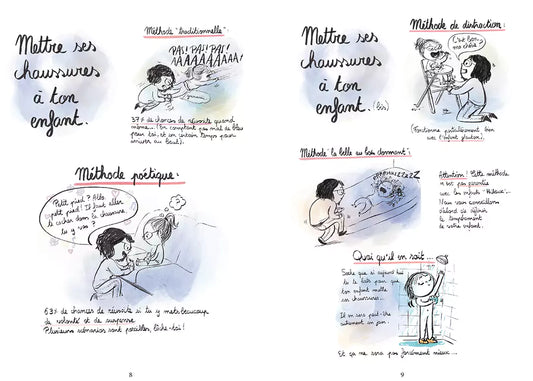 Mettre ses
chaussures
à ton
enfant.
Méthode "traditionnelle":
PAS! PAS! PAS!
AAAAAAAAAA!
37% de chances de réussite quand
même... (En comptant pas mal de bleus
pour toi, et un certain temps pour
arriver au bout).
Méthode poétique:
Petit pied? Allo
petit pied! Il faut aller
te cacher dans la chaussure,
tu y vas?
63% de chances de réussite si tu y mets beaucoup
de volonté et de suspense.
Plusieurs scénarios sont possibles, lâche-toi!
8
Mettre ses
chaussures
à ton
enfant. (bis)
Méthode de distraction:
C'est bon,
ma chérie
(Fonctionne particulièrement bien
avec l'enfant glouton).
Méthode "la belle au bois dormant":
Attention! Cette méthode
n'est pas garantie
avec les enfants
Nous vous conseillons
d'abord de définir
le tempérament
de votre enfant.
Quoi qu'il en soit...
Sache que si aujourd'hui
tu le fais pour que
ton enfant mette
ses chaussures...
Il en sera peut-être
autrement un jour.
Et ça ne sera pas forcément mieux...
9